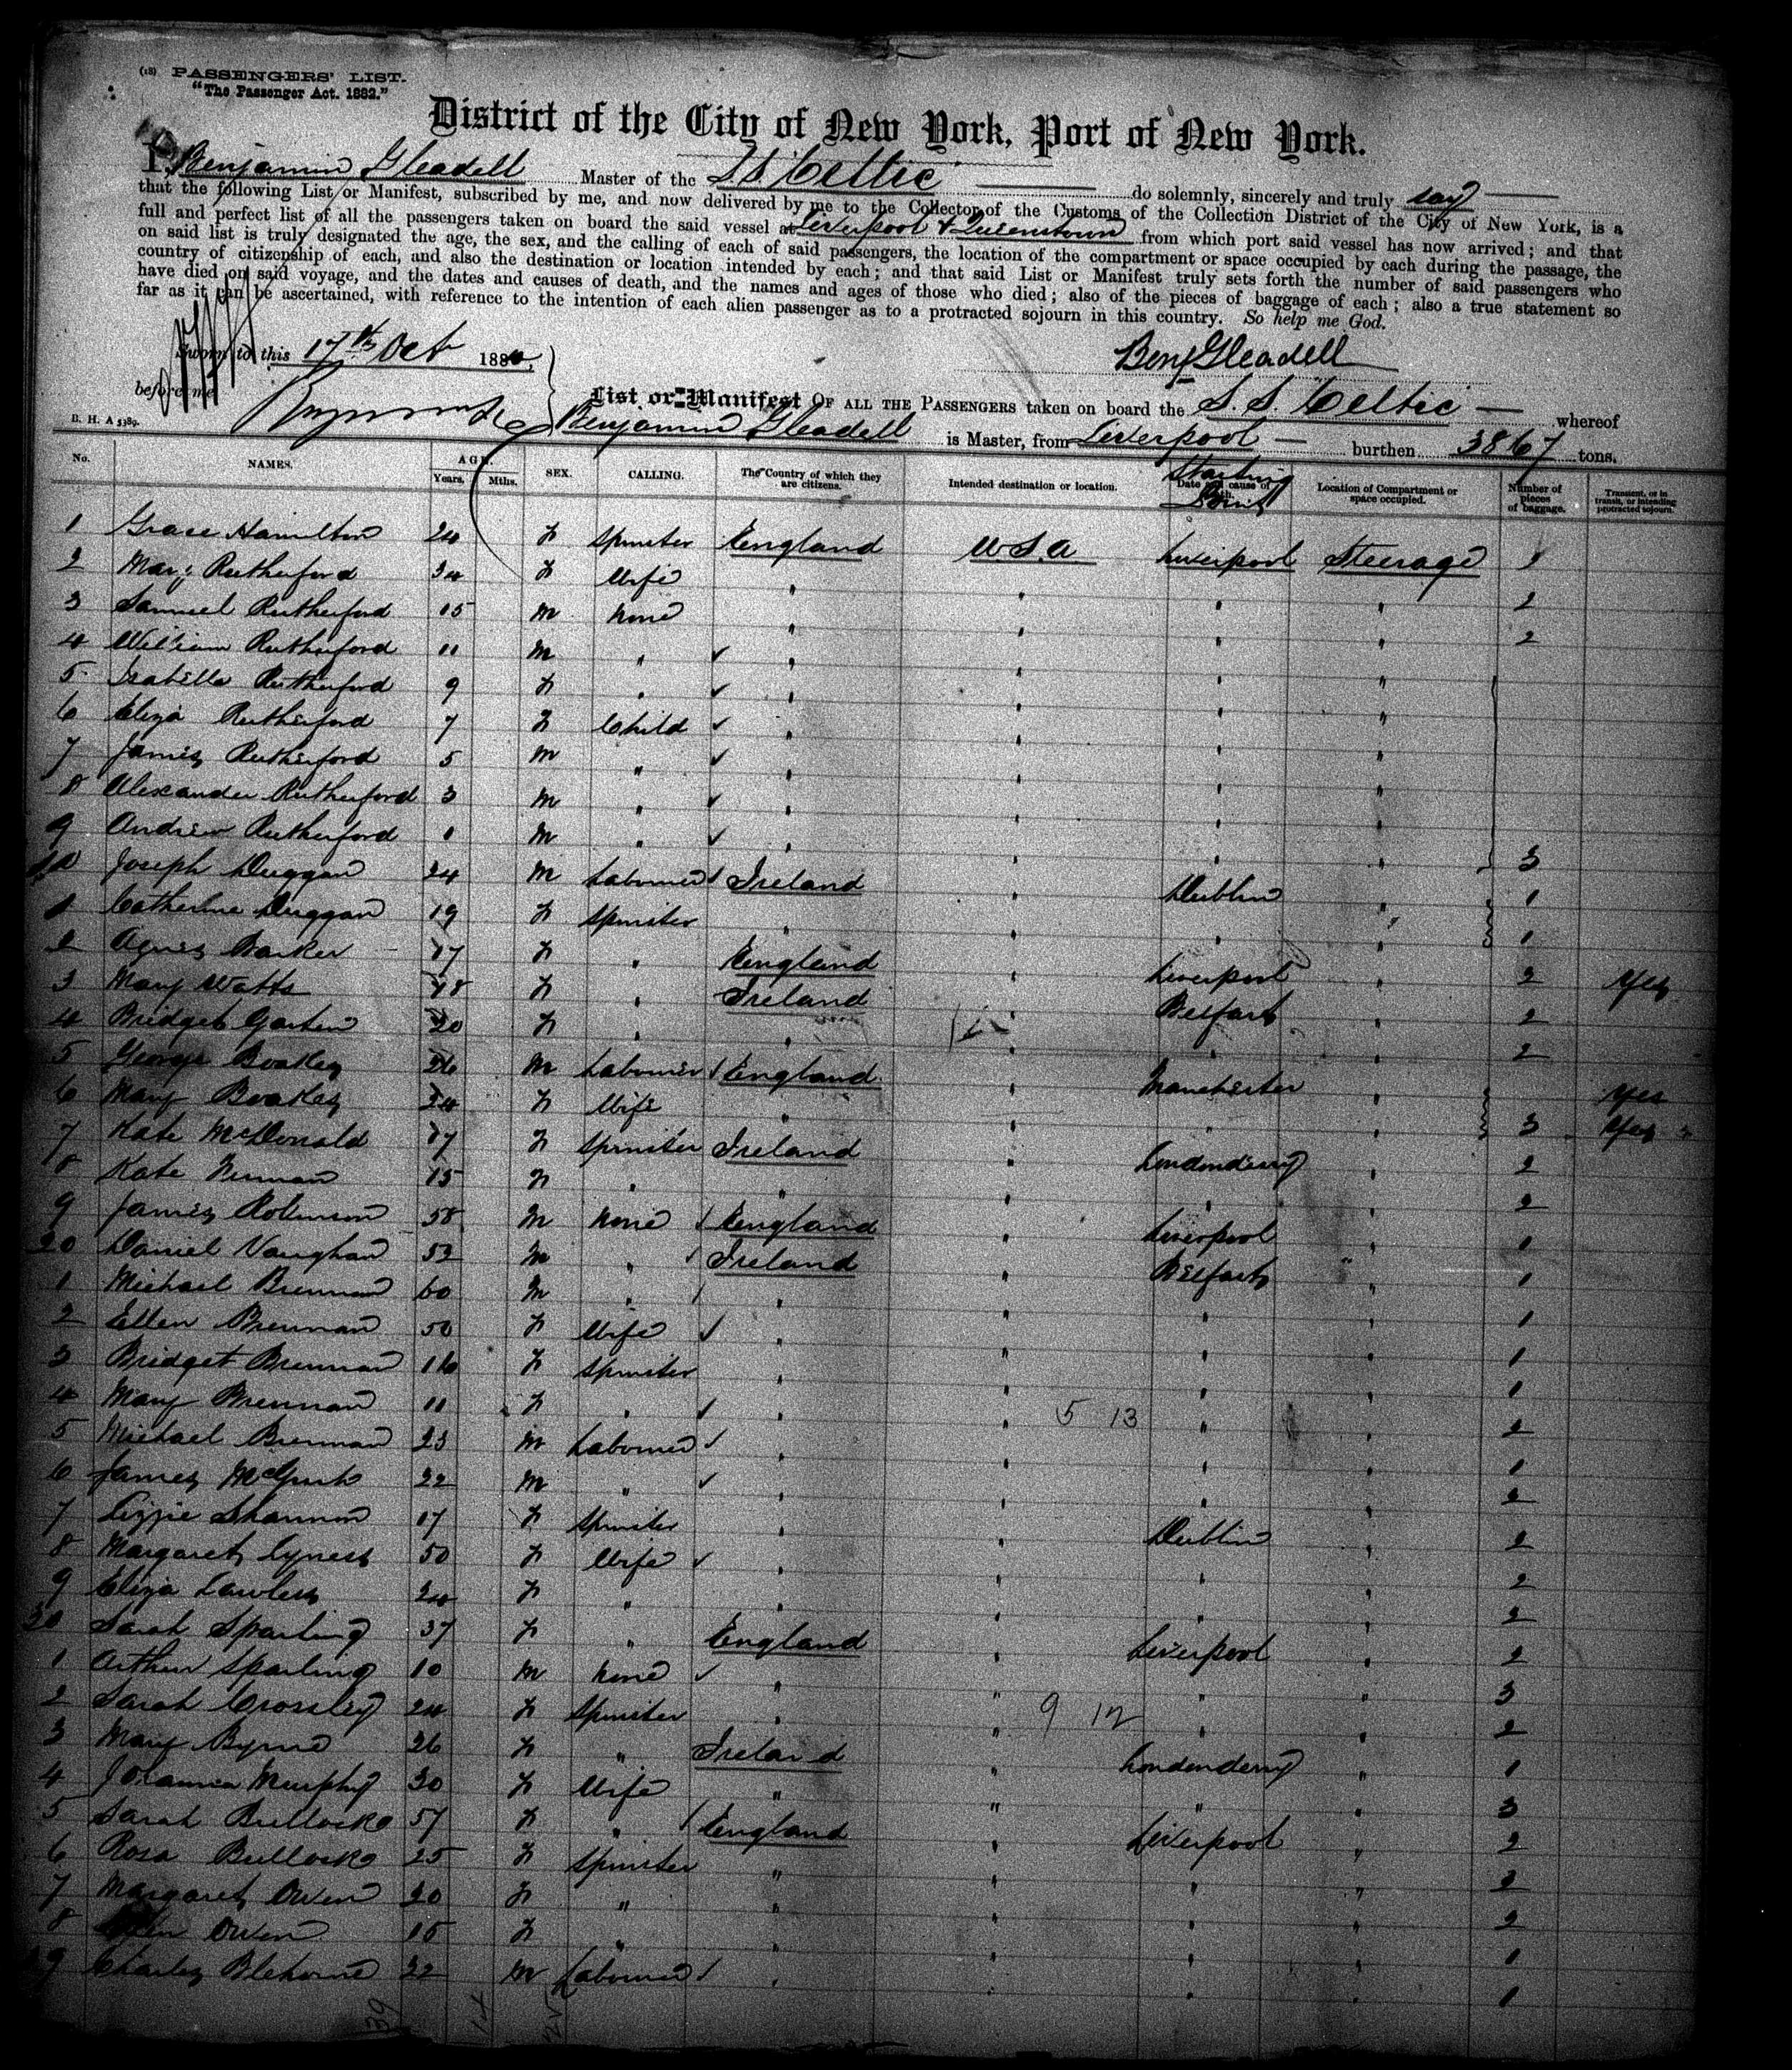 (18) PASSENGERS' LIST.
"The Passenger Act. 1882."
District of the City of New York, Port of New York.
I, Benjamin Gleadell Master of the S.S. Celtic do solemnly, sincerely and truly say
that the following List or Manifest, subscribed by me, and now delivered by me to the Collector of the Customs of the Collection District of the City of New York, is a
full and perfect list of all the passengers taken on board the said vessel at Liverpool & Queenstown from which port said vessel has now arrived; and that
on said list is truly designated the age, the sex, and the calling of each of said passengers, the location of the compartment or space occupied by each during the passage, the
country of citizenship of each, and also the destination or location intended by each; and that said List or Manifest truly sets forth the number of said passengers who
have died on said voyage, and the dates and causes of death, and the names and ages of those who died; also of the pieces of baggage of each; also a true statement so
far as it can be ascertained, with reference to the intention of each alien passenger as to a protracted sojourn in this country. So help me God.
Sworn to this 17th Oct 188
Benj Gleadell
before me
List or Manifest OF ALL THE PASSENGERS taken on board the S.S. Celtic whereof
B. H. A 5389. Benjamin Gleadell is Master, from Liverpool burthen 3867 tons.
No. NAMES. AGE. Years. Mths. SEX. CALLING. The Country of which they are citizens. Intended destination or location. Starting Point Date and cause of Location of Compartment or space occupied. Number of pieces of baggage. Transient, or in transit, or intending protracted sojourn.
1 Grace Hamilton 24 F Spinster England U.S.A. Liverpool Steerage 1
2 Mary Rutherford 34 F Wife " " " " 2
3 Samuel Rutherford 15 M None " " " " 2
4 William Rutherford 11 M " ✓ " " " "
5 Isabella Rutherford 9 F " ✓ " " " "
6 Eliza Rutherford 7 F Child ✓ " " " "
7 James Rutherford 5 M " ✓ " " " "
8 Alexander Rutherford 3 M " ✓ " " " "
9 Andrew Rutherford 1 M " ✓ " " " " 3
10 Joseph Duggan 24 M Labourer ✓ Ireland " Dublin " 1
1 Catherine Duggan 19 F Spinster " " " " 1
2 Agnes Barker 17 F " England " Liverpool " 2 Yes
3 Mary Watts 18 F " Ireland " Belfast " 2
4 Bridget 20 F " " " " " 2
5 George Boakes 26 M Labourer ✓ England " Manchester "  Yes
6 Mary Boakes 24 F Wife " " " " 3 Yes
7 Kate McDonald 17 F Spinster Ireland " Londonderry " 2
8 Kate 15 F " " " " " 2
9 James Robinson 58 M None ✓ England " Liverpool " 1
20 Daniel Vaughan 53 M " ✓ Ireland " Belfast " 1
1 Michael Brennan 60 M " ✓ " " " " 1
2 Ellen Brennan 50 F Wife ✓ " " " " 1
3 Bridget Brennan 16 F Spinster " " " " 1
4 Mary Brennan 11 F " ✓ " " 5 13 " " 2
5 Michael Brennan 23 M Labourer ✓ " " " " 1
6 James McGurk 22 M " ✓ " " " " 2
7 Lizzie Shannon 17 F Spinster " " Dublin " 2
8 Margaret 50 F Wife ✓ " " " " 2
9 Eliza Lawless 24 F " " " " " 2
30 Sarah Sparling 37 F " England " Liverpool " 2
1 Arthur Sparling 10 M None ✓ " " " " 3
2 Sarah Crossley 24 F Spinster " " 9 12 " " 2
3 Mary Byrne 26 F " Ireland " Londonderry " 1
4 Johanna Murphy 30 F Wife " " " " 3
5 Sarah Bullock 57 F " ✓ England " Liverpool " 2
6 Rosa Bullock 25 F Spinster " " " " 2
7 Margaret Owen 20 F " " " " " 2
8 Owen 15 F " " " " " 1
9 Charles Blehorne 22 M Labourer ✓ " " " " 1
39 14